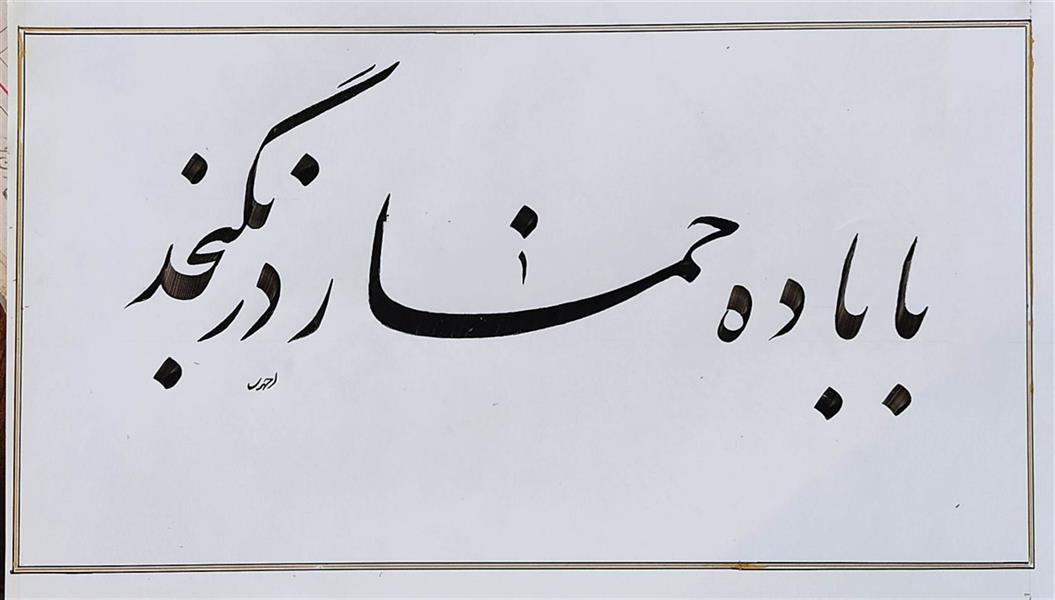 با باده خمار در نگنجد